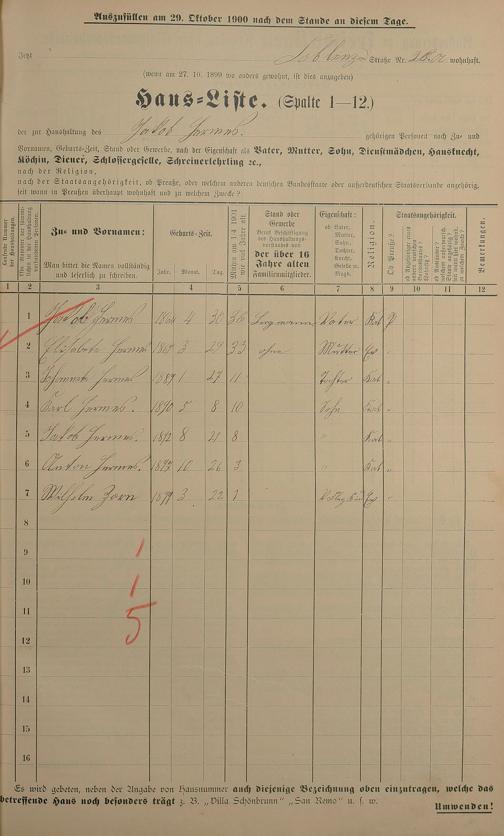 Auszufüllen am 29. Oktober 1900 nach dem Stande an diesem Tage.
Jetzt Coblenzer Straße Nr. wohnhaft.
(wenn am 27. 10. 1899 wo anders gewohnt, ist dies anzugeben)
Haus=Liste. (Spalte 1—12.)
der zur Haushaltung des Jakob Hermes. gehörigen Personen nach Zu- und
Vornamen, Geburts-Zeit, Stand oder Gewerbe, nach der Eigenschaft als Vater, Mutter, Sohn, Dienstmädchen, Hausknecht,
Köchin, Diener, Schlossergeselle, Schreinerlehrling ec.,
nach der Religion,
nach der Staatsangehörigkeit, ob Preuße, oder welchem anderen deutschen Bundesstaate oder außerdeutschen Staatsverbande angehörig,
seit wann in Preußen überhaupt wohnhaft und zu welchem Zwecke?
Zu- und Vornamen:
Man bittet die Namen vollständig
und leserlich zu schreiben.
Geburts-Zeit.
Jahr. Monat. Tag.
Stand oder
Gewerbe
der über 16
Jahre alten
Familienmitglieder.
Eigenschaft:
ob Vater,
Mutter,
Sohn,
Tochter,
Knecht,
Geselle o.
Magd.
Religion.
Staatsangehörigkeit.
Ob Preuße?
Bemerkungen.
1 2 3 4 5 6 7 8 9 10 11 12
1 Jakob Hermes 1864 4 30 36 Bergmann Vater Kat P
2 Elisabete Hermes 3 29 33 ohne Mutter Ev "
3 Hermes 1889 1 27 11 Tochter Kat "
4 Karl Hermes. 1890 5 8 10 Sohn Kat "
5 Jakob Hermes. 1892 8 21 8 " Kat "
6 Anton Hermes. 1897 10 26 3 " Kat "
7 Wilhelm Zorn 1899 3 22 1 Ev "
8
9
10
11
12
13
14
15
16
1
1
5
Es wird gebeten, neben der Angabe von Hausnummer auch diejenige Bezeichnung oben einzutragen, welche das
betreffende Haus noch besonders trägt z. B. „Villa Schönbrunn" „San Remo" u. s. w.
Umwenden!